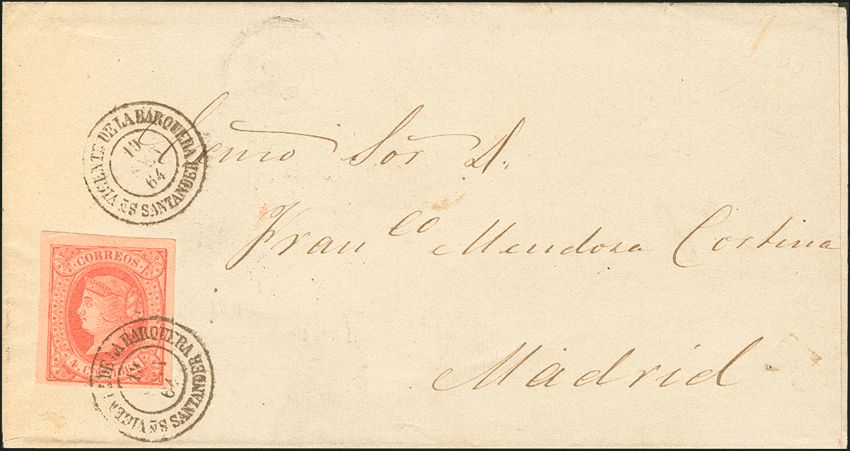 Sn VICENTE DE LA BARQUERA
SANTANDER
19
64
Exmo Sor D.
Franco Mendoza Cortina
Madrid
CORREOS
4 C
Sn VICENTE DE LA BARQUERA
SANTANDER
19
64